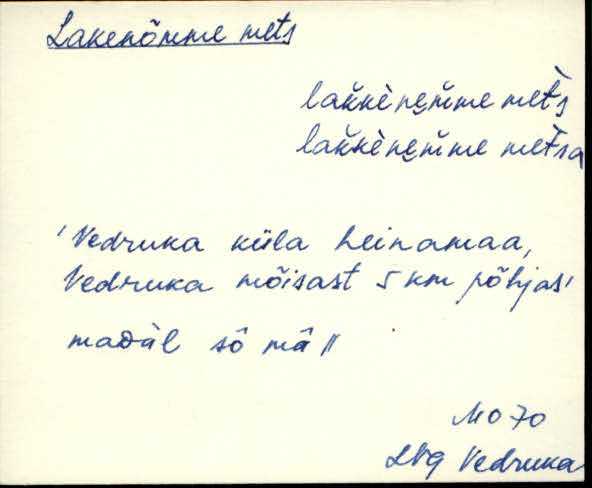 Lakenõmme mets
lak̆k̀ène̮m̆me met̀s
lak̆k̀ène̮m̆me met̀sa
'Vedruka küla heinamaa,
Vedruka mõisast 5 km põhjas'
maDàl sō mā ||
MO 70
Lvg Vedruka